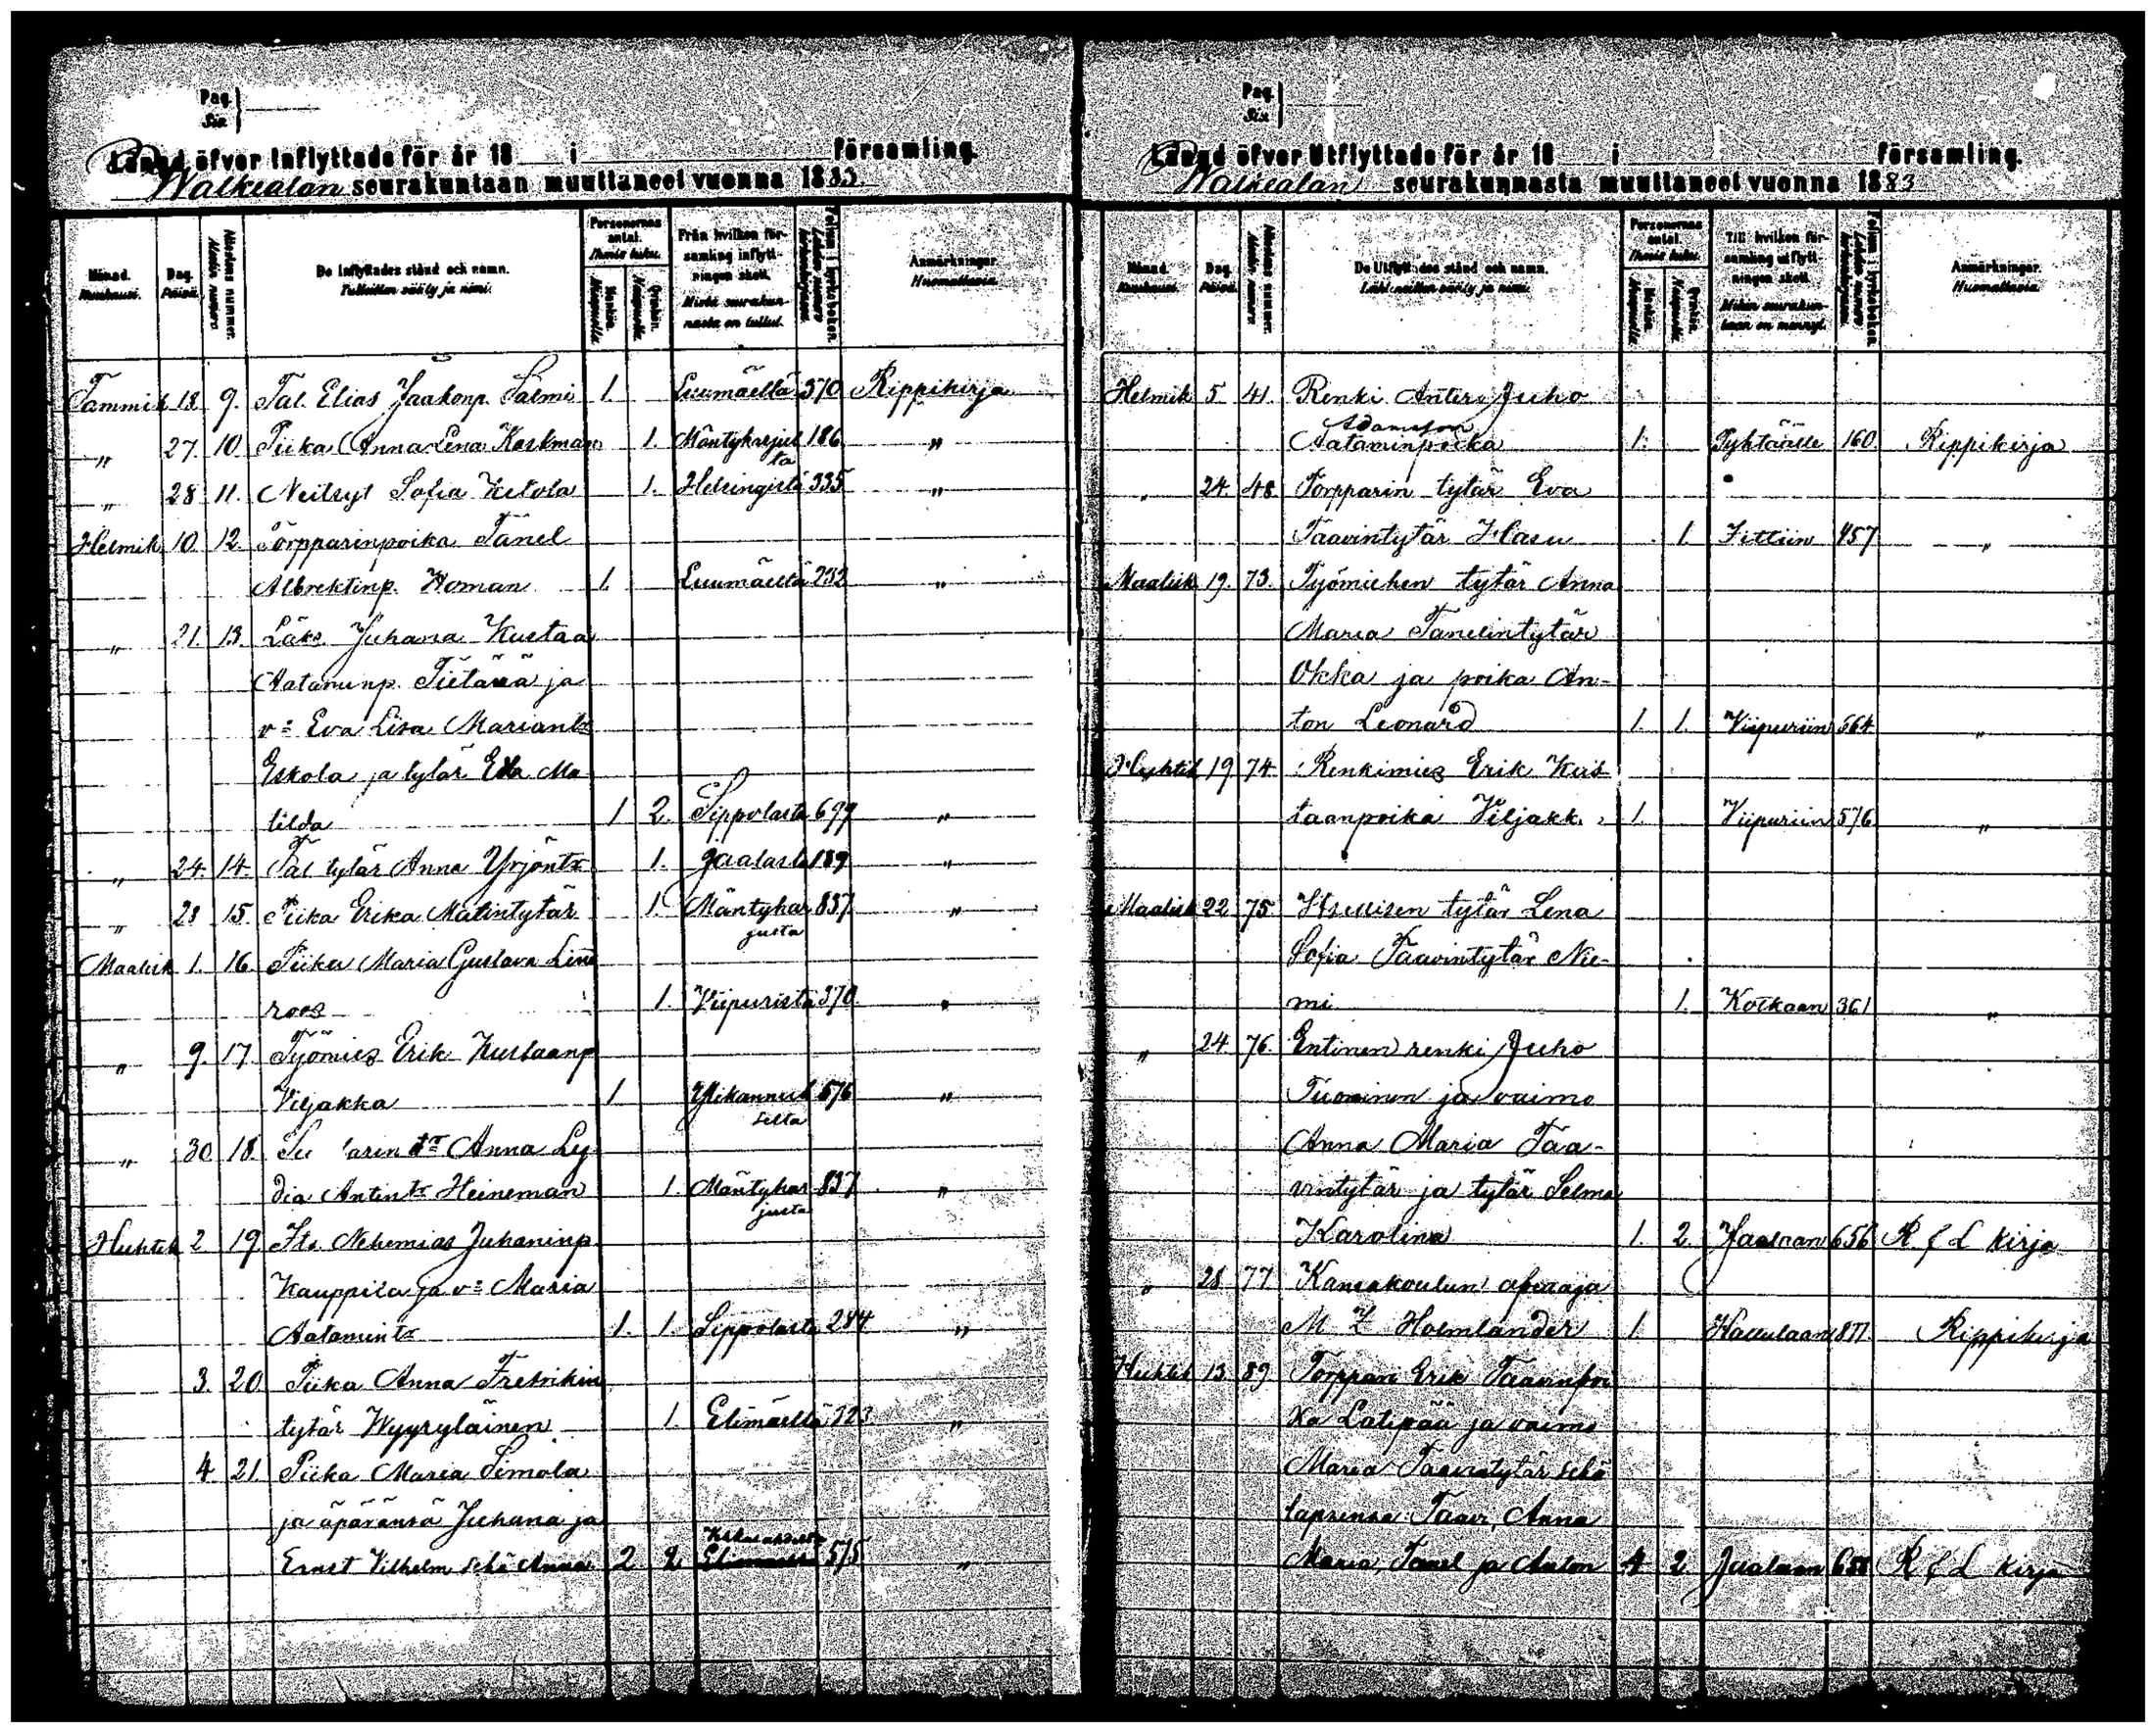 Pag.
Siv.
Längd öfver Inflyttade för år 18 i församling.
Walkealan seurakuntaan muuttaneet vuonna 1883.
Månad. Kuukausi. Dag. Päivä. Attestens nummer. Attestin numero. De Inflyttades stånd och namn. Tulleitten sääty ja nimi. Personernas antal. Ihmis luku. Mankön. Miespuolia. Qvinkön. Naispuolia. Från hvilken församling inflyttningen skett. Mistä seurakunnasta on tullut. Folium i kyrkoboken. Lehden numero kirkonkirjassa. Anmärkningar. Huomattavia.
Tammik 18. 9. Tal. Elias Jaakonp. Salmi 1. Luumäeltä 370 Rippikirja
" 27. 10. Piika Anna Lena Kaskman 1. Mäntyharjul 186 "
ta
" 28 11. Neitsyt Sofia Ketola 1. Helsingistä 335 "
Helmik 10. 12. Torpparinpoika Tanel
Albrektinp. Homan 1. Luumäeltä 232 "
" 21. 13. Läks. Juhana Kustaa
Aataminp. Tiitänä ja
v: Eva Lisa Mariantr
Eskola ja tytär Eva Ma
tilda 1 2. Sippolasta 699 "
" 24. 14. Tal. tytär Anna Yrjöntr 1. Jaalasta 189 "
" 28 15. Piika Erika Matintytär 1. Mäntyhar 837 "
justa
Maalisk 1. 16. Piika Maria Gustava Lind
roos 1. Viipurista 370 "
" 9. 17. Työmies Erik Kustaanp
Viljakka 1 Ylikannuk 576 "
selta
" 30 18. arin tr Anna Ly
dia Antintr Heineman 1. Mäntyhar 837 "
justa
Huhtik 2 19 Its. Nehemias Juhaninp
Kauppila ja v: Maria
Aatamintr 1. 1. Sippolasta 284 "
3. 20 Piika Anna Fredrikin
tytär Wyyryläinen 1. Elimäeltä 323 "
4. 21. Piika Maria Simola
ja äpäränsä Juhana ja
Ernst Vilhelm sekä Anna 2 2 515 "
Pag.
Siv.
Längd öfver Utflyttade för år 18 i församling.
Walkealan seurakunnasta muuttaneet vuonna 1883
Månad. Kuukausi. Dag. Päivä. Attestens nummer. Attestin numero. De Utflyttades stånd och namn. Lähteneitten sääty ja nimi. Personernas antal. Ihmis luku. Mankön. Miespuolia. Qvinkön. Naispuolia. Till hvilken församling utflyttningen skett. Mihin seurakuntaan on mennyt. Folium i kyrkoboken. Lehden numero kirkonkirjassa. Anmärkningar. Huomattavia.
Helmik 5. 41. Renki Antero Juho
Adamsson
Aataminpoika 1. Pyhtäälle 160. Rippikirja
" 24. 48. Torpparin tytär Eva
Taavintytär Hasu 1. Iittiin 457 "
Maalisk 19. 73. Työmiehen tytär Anna
Maria Tanelintytär
Okka ja poika An-
ton Leonard 1. 1. Viipuriin 564 "
Huhtik 19 74. Renkimies Erik Kus
taanpoika Viljakk. 1. Viipuriin 576 "
Maalisk 22 75 Itsellisen tytär Lena
Sofia Taavintytär Nie-
mi 1. Kotkaan 361 "
" 24. 76. Entinen renki Juho
Tuominen ja vaimo
Anna Maria Taa-
vintytär ja tytär Selma
Karolina 1. 2. Jaalaan 656 R & L kirja
" 28 77 Kansakoulun opettaja
M Z Holmlander 1. 877 Rippikirja
Huhtik 13 89 Torppari Erik Taavinpoi
ka Latipää ja vaimo
Maria Taavintytär sekä
lapsensa Taavi, Anna
Maria, Tanel ja Anton 4 2 Jaalaan 658 R & L kirja